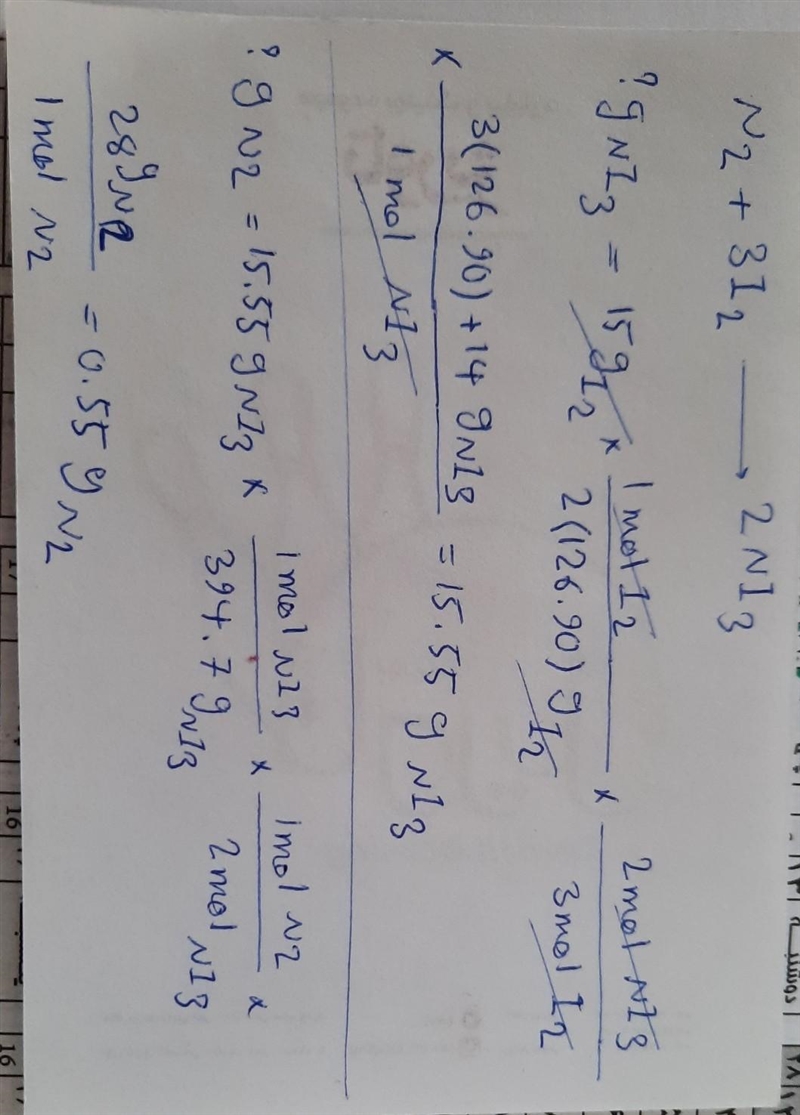 N2 + 3I2 → 2NI3
? g NI3 = 15 g I2 × 1 mol I2 / 2(126.90) g I2 × 2 mol NI3 / 3 mol I2
× 3(126.90) + 14 g NI3 / 1 mol NI3 = 15.55 g NI3
? g N2 = 15.55 g NI3 × 1 mol NI3 / 394.7 g NI3 × 1 mol N2 / 2 mol NI3 ×
28 g N2 / 1 mol N2 = 0.55 g N2
دوشنبه
16
17
16